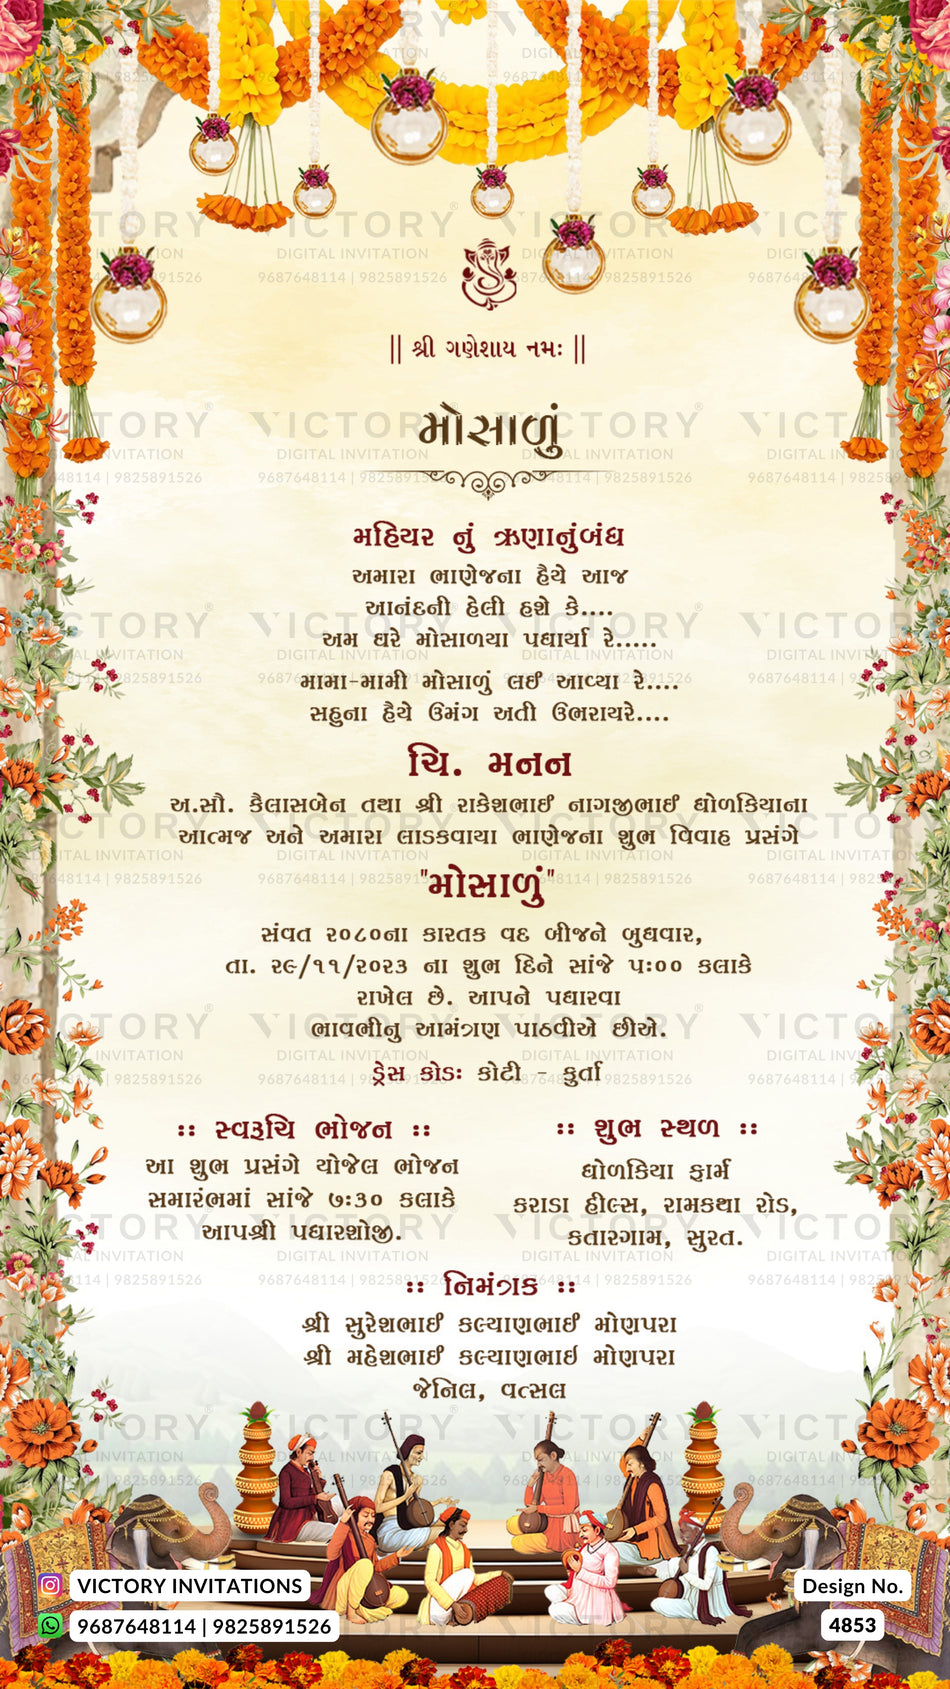 || શ્રી ગણેશાય નમઃ ||
મોસાળું
મહિયર નું ઋણાનુંબંધ
અમારા ભાણેજના હૈયે આજ
આનંદની હેલી હશે કે....
અમ ઘરે મોસાળયા પધાર્યા રે.....
મામા-મામી મોસાળું લઈ આવ્યા રે....
સહુના હૈયે ઉમંગ અતી ઉભરાયરે....
ચિ. મનન
અ.સૌ. કૈલાસબેન તથા શ્રી રાકેશભાઈ નાગજીભાઈ ધોળકિયાના
આત્મજ અને અમારા લાડકવાયા ભાણેજના શુભ વિવાહ પ્રસંગે
"મોસાળું"
સંવત ૨૦૮૦ના કારતક વદ બીજને બુધવાર,
તા. ૨૯/૧૧/૨૦૨૩ ના શુભ દિને સાંજે ૫:૦૦ કલાકે
રાખેલ છે. આપને પધારવા
ભાવભીનુ આમંત્રણ પાઠવીએ છીએ.
ડ્રેસ કોડઃ કોટી - કુર્તા
:: સ્વરૂચિ ભોજન ::
આ શુભ પ્રસંગે યોજેલ ભોજન
સમારંભમાં સાંજે ૭:૩૦ કલાકે
આપશ્રી પધારશોજી.
:: શુભ સ્થળ ::
ધોળકિયા ફાર્મ
કરાડા હીલ્સ, રામકથા રોડ,
કતારગામ, સુરત.
:: નિમંત્રક ::
શ્રી સુરેશભાઈ કલ્યાણભાઈ મોણપરા
શ્રી મહેશભાઈ કલ્યાણભાઇ મોણપરા
જેનિલ, વત્સલ
VICTORY INVITATIONS
9687648114 | 9825891526
Design No.
4853
VICTORY®
DIGITAL INVITATION
9687648114 | 9825891526